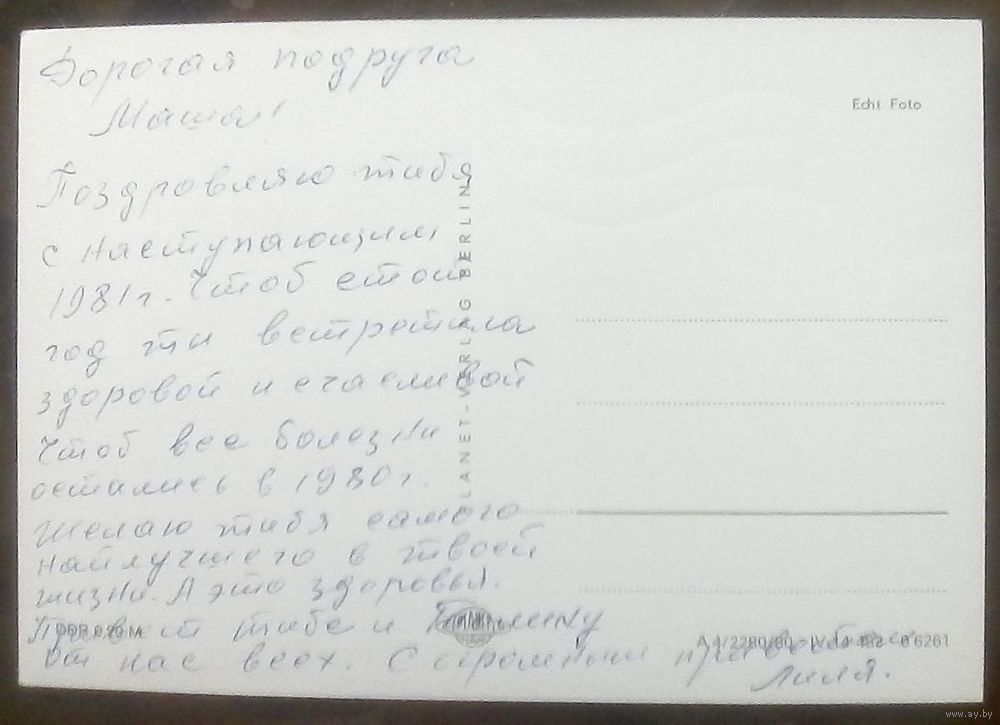 Дорогая подруга
Маша!
Поздровляю тибя
с наступающим
1981 г. Чтоб етот
год ты встретила
здоровой и счасливой
Чтоб все болезни
остались в 1980 г.
желаю тибя самого
найлучшего в твоей
жизни. А это здоровья.
Привет тибе и
от нас всех. С огромным приветом
Лиля.
PLANET-VERLAG BERLIN
Echt Foto
www.ay.by